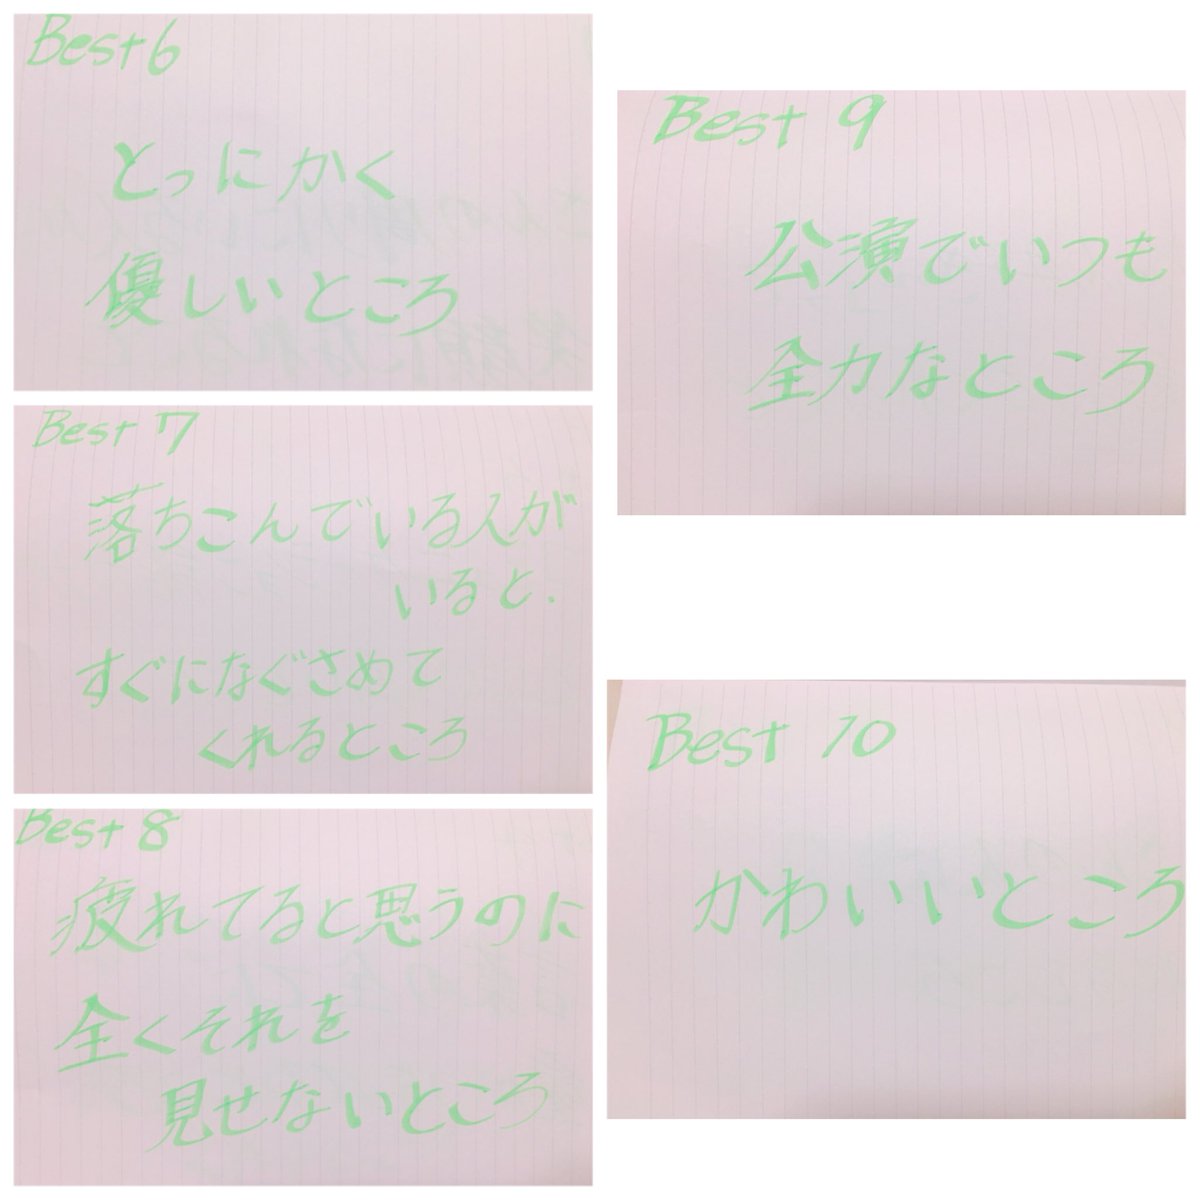 Best 6
とっにかく
優しいところ
Best 7
落ちこんでいる人が
いると.
すぐになぐさめて
くれるところ
Best 8
疲れてると思うのに
全くそれを
見せないところ
Best 9
公演でいつも
全力なところ
Best 10
かわいいところ